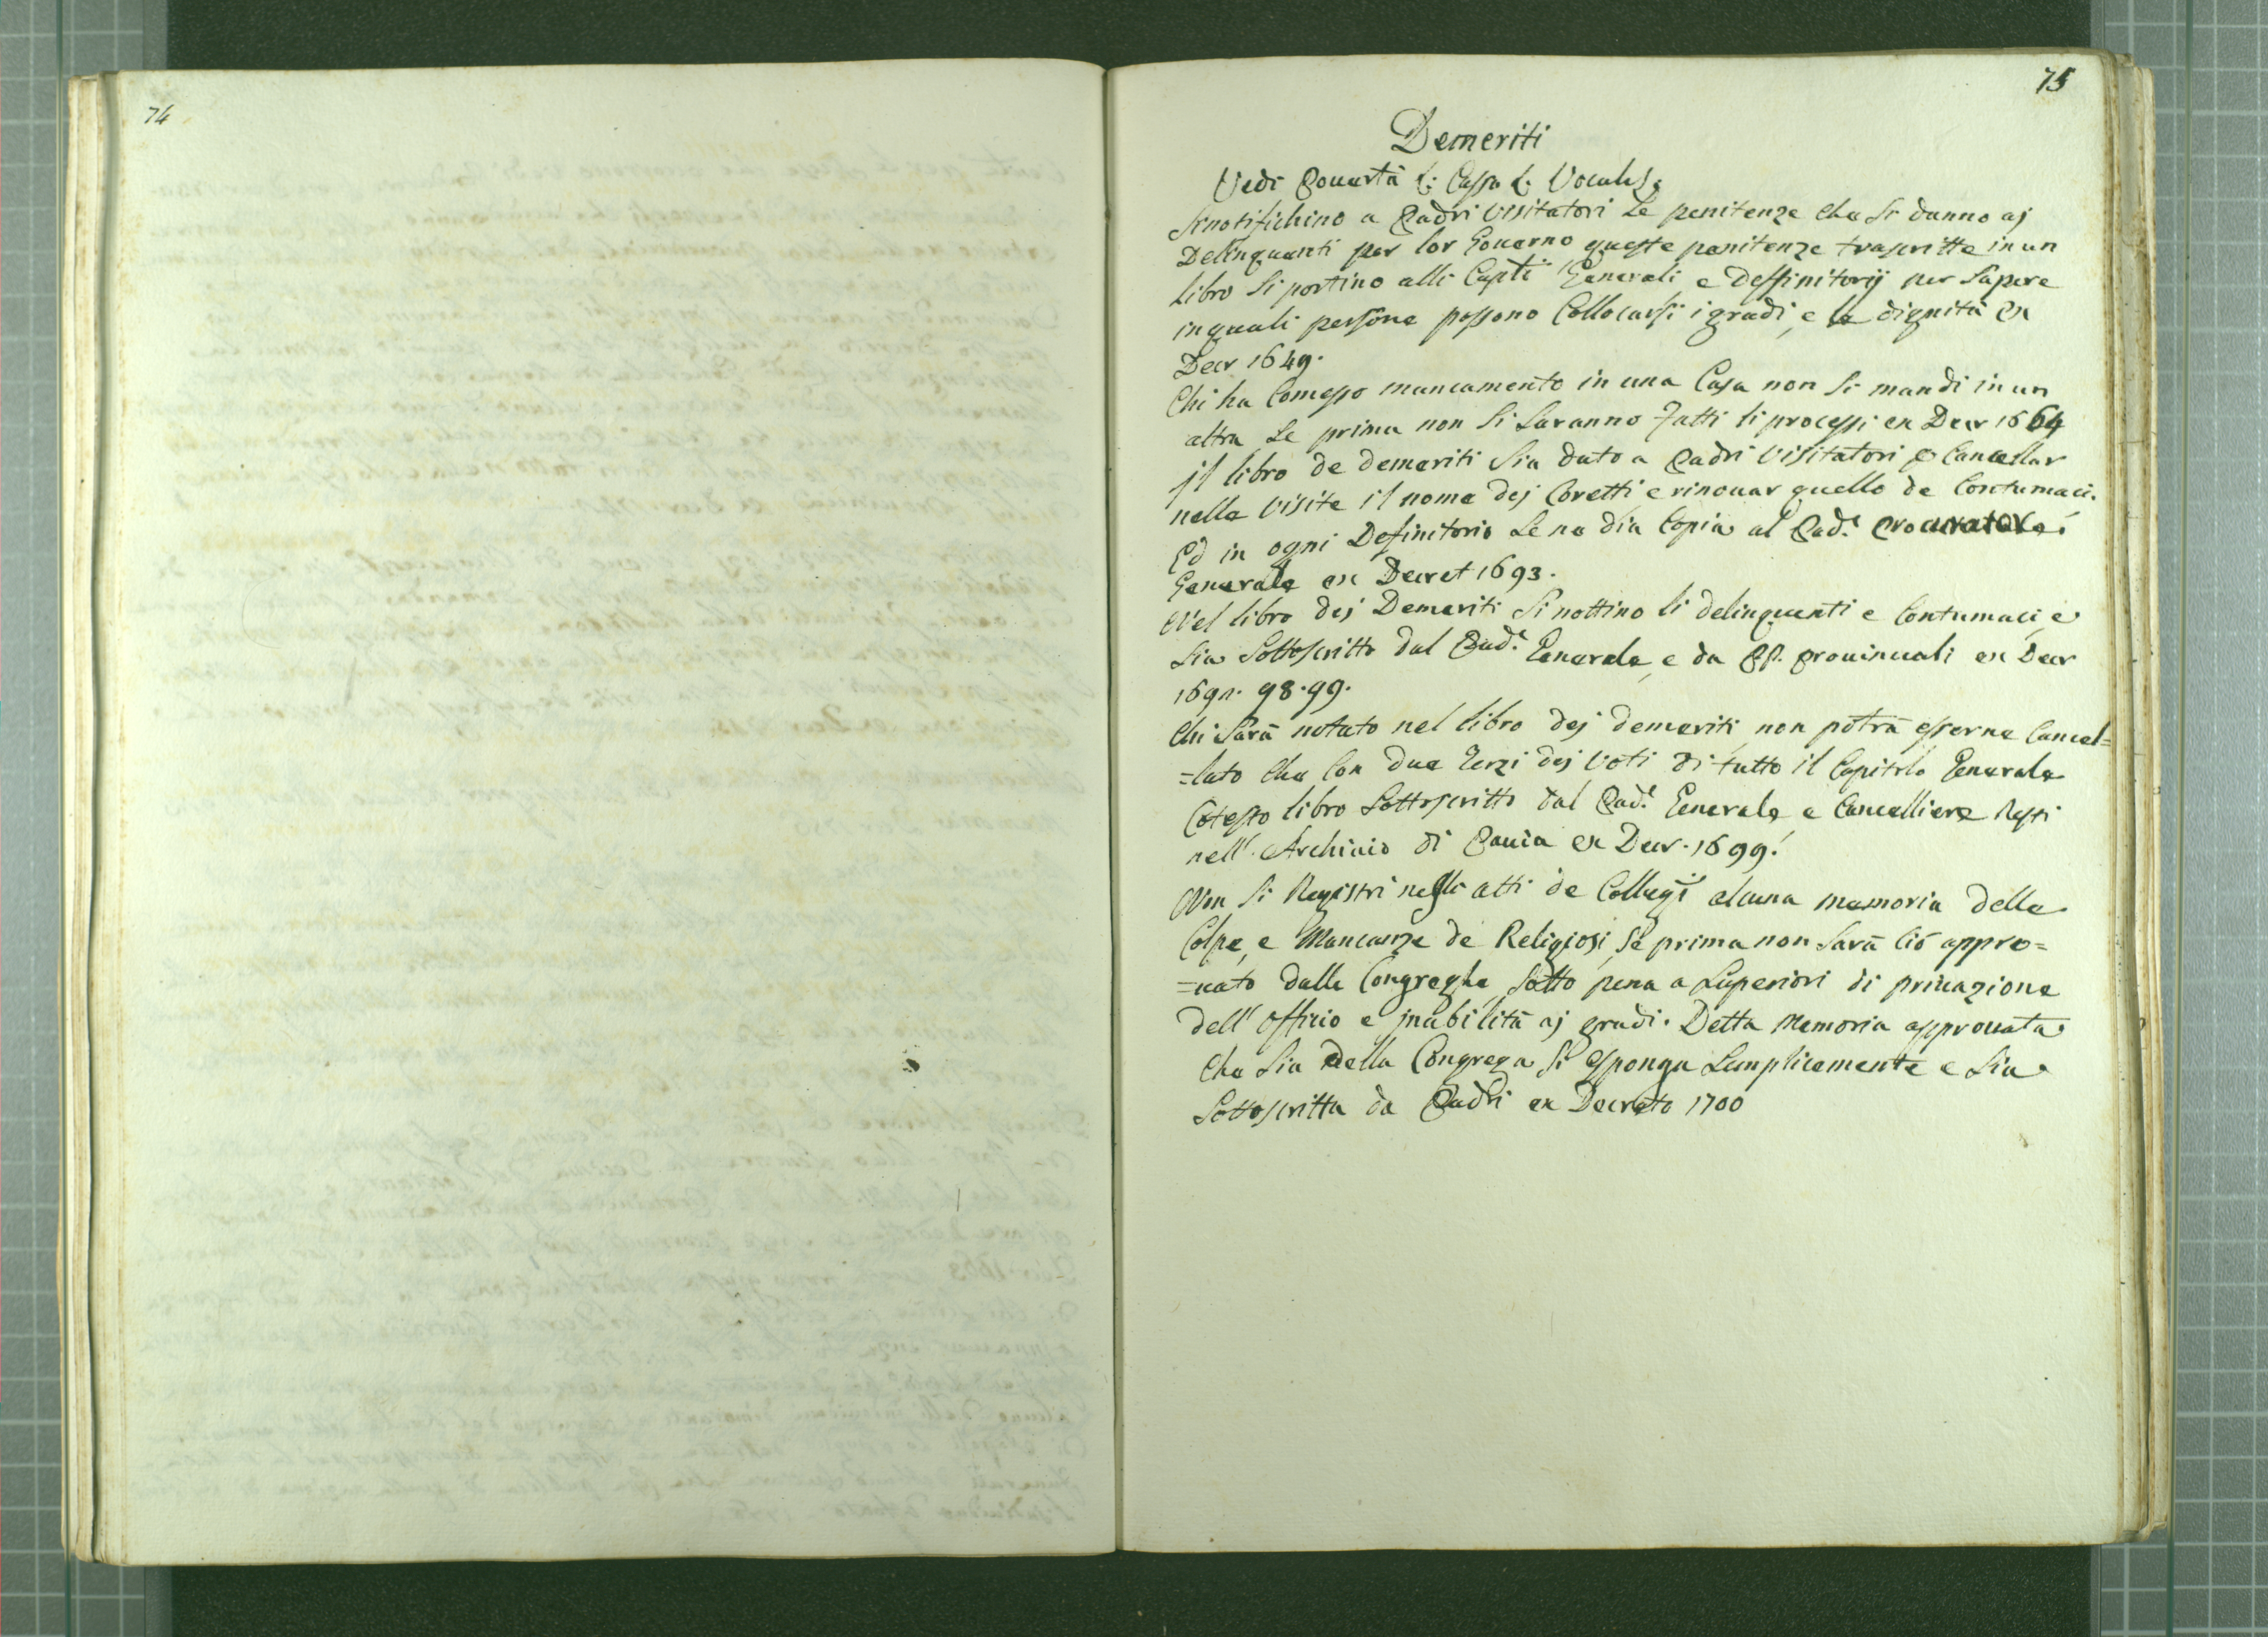 74
75
Demeriti
Vedi Pouertà L: Cassa L: Vocales.
Si notifichino a Padri Visitatori Le penitenze che Si danno aj
Delinquenti per lor Gouerno queste penitenze trascritte in un
Libro Si portino alli Capti Generali e Deffinitorij per Sapere
in quali persone possono Collocarsi i gradi, e le dignità ex
Decr 1649.
Chi ha Comesso mancamento in una Casa non Si mandi in un
altra Se prima non Si Saranno fatti li processi ex Decr 1664
jl libro de demeriti Sia dato a Padri Visitatori p Cancellar
nelle Visite il nome dej Coretti e rinouar quello de Contumaci.
Ed in ogni Definitorio Se ne dia Copia al Pad.e Procuratore
Generale ex Decret 1693.
Nel libro dej Demeriti Si nottino li delinquenti e Contumaci, e
Sia Sottoscritto dal Pad.e Generale, e da PP. Prouinciali ex Decr
169 . 98.99.
Chi Sarà notato nel libro dej demeriti non potrà esserne Cancel=
=lato che Con due Terzi dej Voti di tutto il Capitolo Generale
Cotesto libro Sottoscritto dal Pad.e Generale e Cancelliere Resti
nell' Archiuio di Pauia ex Decr. 1699.
Non Si Registri negli atti de Collegij alcuna memoria delle
Colpe, e Mancanze de Religiosi, Se prima non Sarà Ciò appro=
=uato dalle Congreghe Sotto pena a Superiori di priuazione
dell' officio e jnabilità aj gradi. Detta Memoria approuata
Che Sia della Congrega Si esponga Semplicemente e Sia
Sottoscritta da Padri ex Decreto 1700